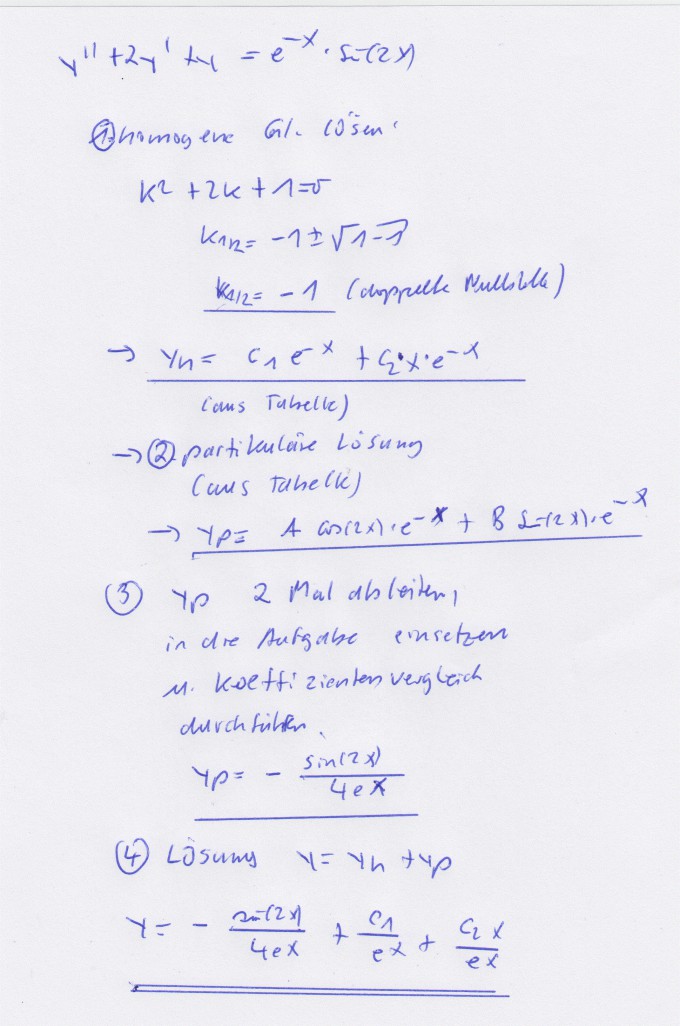 y'' + 2y' + y = e^-x · sin(2x)
① homogene Gl. lösen:
k² + 2k + 1 = 0
k1/2 = -1 ± √1-1
k1/2 = -1 (doppelte Nullstelle)
→ yh = C1 e^-x + C2·x·e^-x
(aus Tabelle)
→ ② partikuläre Lösung
(aus Tabelle)
→ yp = A cos(2x)·e^-x + B sin(2x)·e^-x
③ yp 2 Mal ableiten,
in die Aufgabe einsetzen
u. Koeffizientenvergleich
durchführen.
yp = - sin(2x) / 4e^x
④ Lösung y = yh + yp
y = - sin(2x) / 4e^x + C1 / e^x + C2 x / e^x